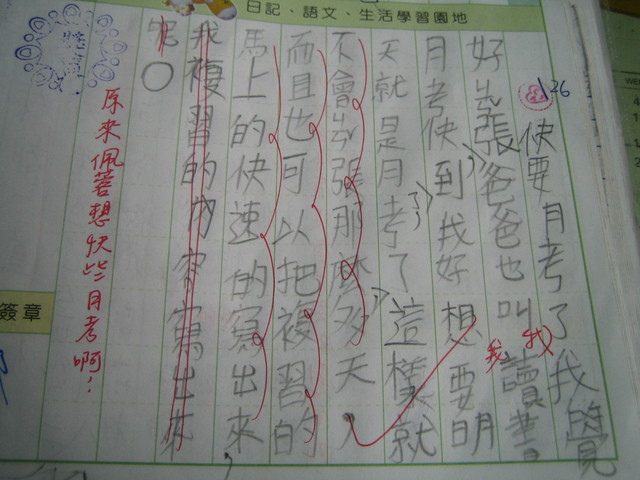 日記、語文、生活學習園地
26
快要月考了我覺
好緊張,爸爸也叫我讀書
月考快到了,我好想要明
天就是月考了,這樣就
不會緊張那麼多天,
而且也可以把複習的
馬上的快速的寫出來,
我複習的內容寫出來
呢○
原來佩菩想快些月考啊!
簽章